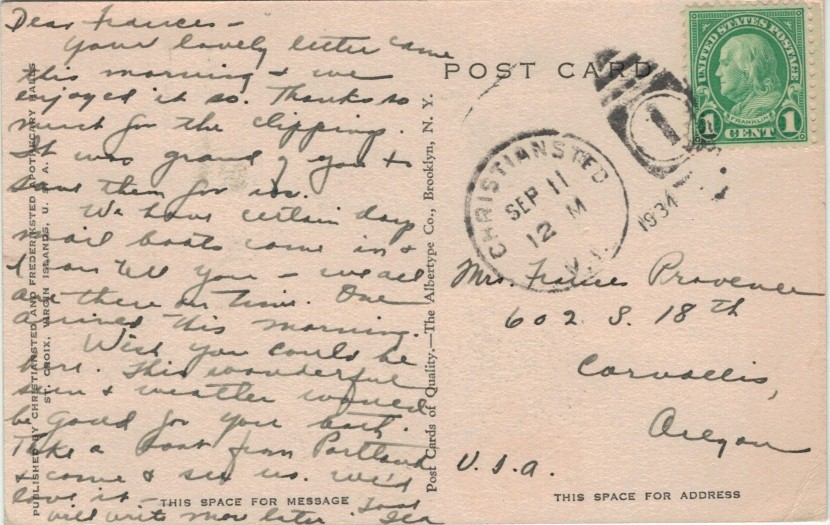 Dear Frances -
Your lovely letter came
this morning & we
enjoyed it so. Thanks so
much for the clippings.
It was grand of you to
save them for us.
We have certain days
mail boats come in &
I can tell you - we all
are there on time. One
arrived this morning.
Wish you could be
here. This wonderful
sun & weather would
be good for you both.
Take a boat from Portland
& come & see us. We'd
love it -
will write more later.
Love
PUBLISHED BY CHRISTIANSTED AND FREDERIKSTED APOTHECARY HALLS
ST. CROIX, VIRGIN ISLANDS, U. S. A.
THIS SPACE FOR MESSAGE
Post Cards of Quality.—The Albertype Co., Brooklyn, N. Y.
POST CARD
UNITED STATES POSTAGE
FRANKLIN
1 CENT 1
1
CHRISTIANSTED
SEP 11
12 M
1934
V. I.
Mrs. Frances Provence
602 S. 18th
Corvallis,
Oregon
U.S.A.
THIS SPACE FOR ADDRESS